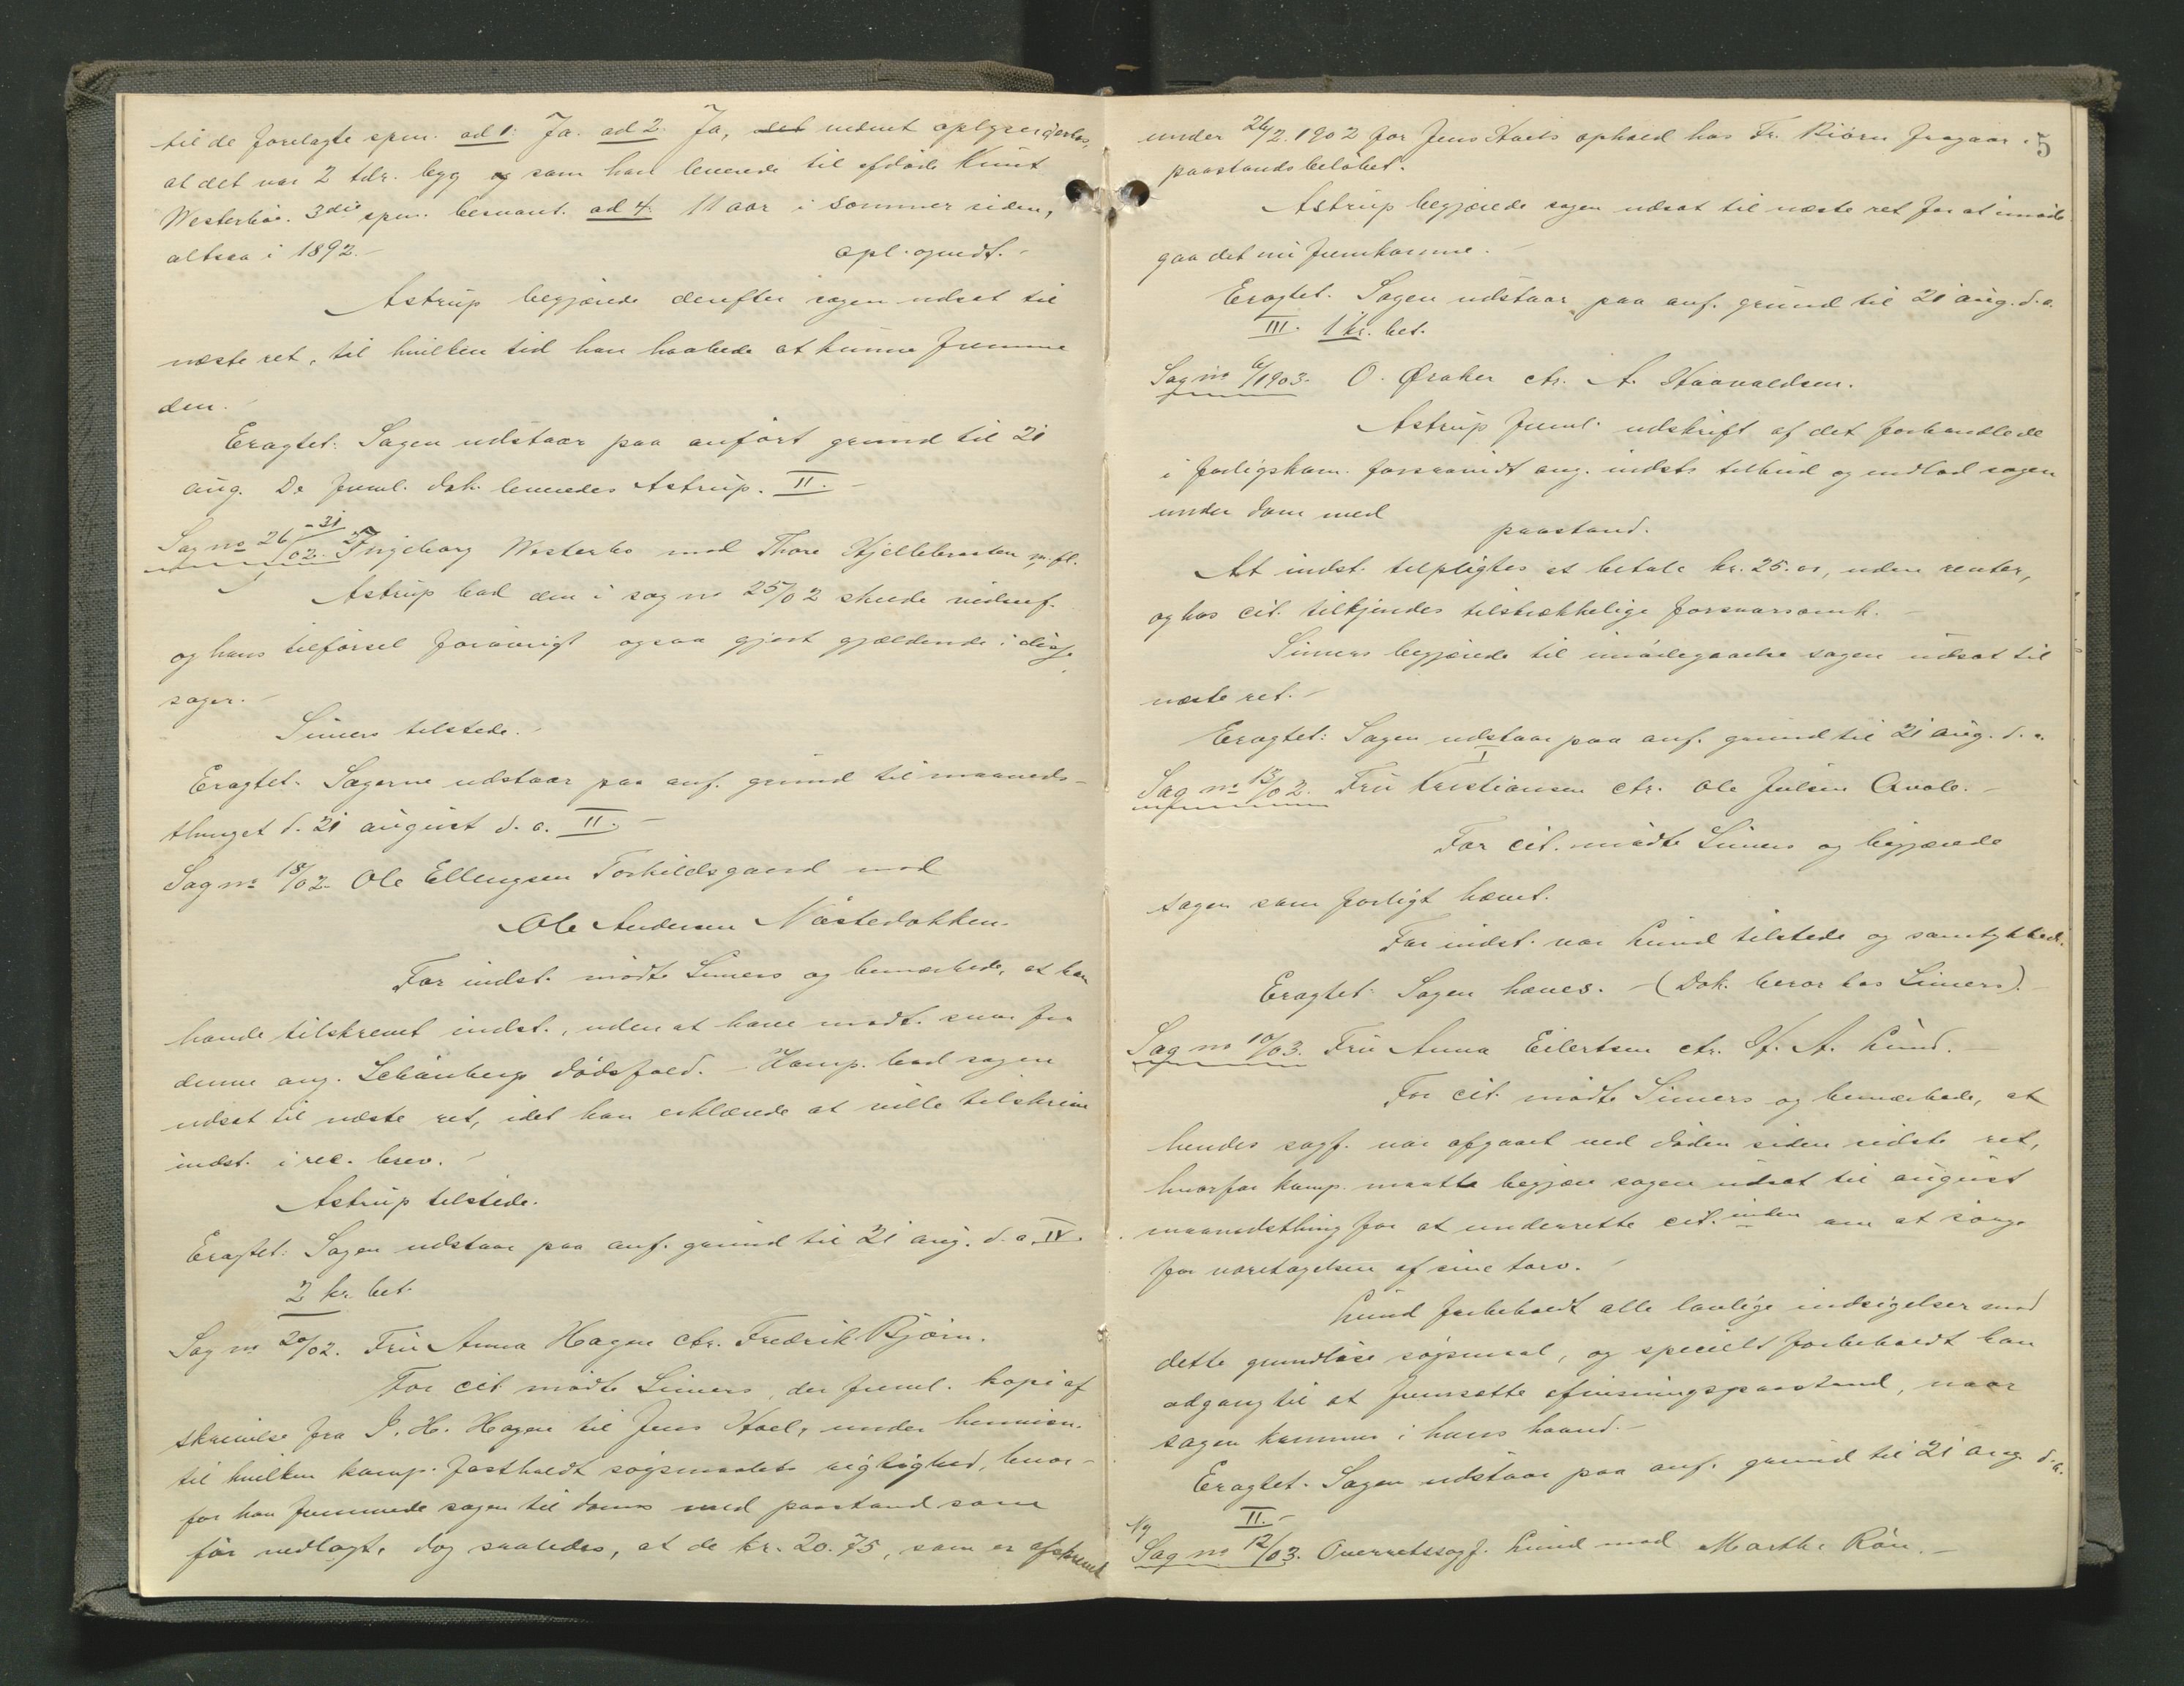 til de forelagte spm. ad 1: Ja. ad 2. Ja, det vidnet oplyser derhos,
at det var 2 tdr. byg og som han leverede til afdøde Knut
Westerbø. 3die spm. besvart. ad 4. 11 aar i sommer siden,
altsaa i 1892.- opl. vedt.-
Astrup begjærede derefter sagen udsat til
næste ret, til hvilken tid han haabede at kunne fremme
den.
Eragtet: Sagen udstaar paa anført grund til 21
aug. De freml. dok. leveredes Astrup. II.-
Sag no 26-31/02. Ingeborg Westerbø mod Thore Hjellebraaten m. fl.
Astrup bad den i sag no 25/02 skede vidnef.
og hans tilførsel forøvrigt ogsaa gjort gjældende i disse
sager.-
Siners tilstede.-
Eragtet. Sagerne udstaar paa anf. grund til maaneds-
thinget d. 21 august d. a. II.-
Sag no 18/02. Ole Ellingsen Torkildsgaard mod
Ole Andersen Næstedokken.
For indst. mødte Siners og bemærkede, at han
havde tilskrevet indst., uden at have modt. svar fra
denne ang. Schønbergs dødsfald. - Komp. bad sagen
udsat til næste ret, idet han erklærede at ville tilskrive
indst. i rec. brev.-
Astrup tilstede.
Eragtet: Sagen udstaar paa anf. grund til 21 aug. d. a. IV.
2 kr. bet.
Sag no 20/02. Fru Anna Hagen ctr. Fredrik Bjørn.
For cit. mødte Siners, der freml. kopi af
skrivelse fra I. H. Hagen til Jens Hoel, under henvisn.
til hvilken komp. fastholdt søgsmaalets rigtighed, hvor-
for han fremmede sagen til doms med paastand som
før nedlagt, dog saaledes, at de kr. 20.75, som er afskrevet
5
under 26/2. 1902 for Jens Hoels ophold hos Fr. Bjørn fragaar i
paastandsbeløbet.
Astrup begjærede sagen udsat til næste ret for at imøde-
gaa det nu fremkomne.-
Eragtet. Sagen udstaar paa anf. grund til 21 aug. d. a.
III. 1 kr. bet.
Sag no 6/1903. O. Øraker ctr. A. Haavaldsen.
Astrup freml. udskrift af det forhandlede
i forligskom. forsaavidt ang. indsts tilbud og indlod sagen
under dom med
paastand.
At indst. tilpligtes at betale kr. 25.00, uden renter,
og hos cit. tilkjendes tilstrækkelige forsvarsomk.-
Siners begjærede til imødegaaelse sagen udsat til
næste ret.-
Eragtet: Sagen udstaar paa anf. grund til 21 aug. d. a.
I
Sag no 15/02. Fru Kristiansen ctr. Ole Julsen Qvale.-
For cit. mødte Siners og begjærede
sagen som forligt hævet.
For indst. var Lund tilstede og samtykkede.
Eragtet: Sagen hæves.- (Dok. beror hos Siners).-
Sag no 10/03. Fru Anna Eilertsen ctr. H. A. Lund.
For cit. mødte Siners og bemærkede, at
hendes sagf. var afgaaet ved døden siden sidste ret,
hvorfor komp. maatte begjære sagen udsat til august
maanedsthing for at underrette cit.inden om at sørge
for varetagelsen af sine tarv.-
Lund forbeholdt alle lovlige indsigelser mod
dette grundløse søgsmaal, og specielt forbeholdt han
adgang til at fremsætte afvisningspaastand, naar
sagen kommer i hans haand.-
Eragtet. Sagen udstaar paa anf. grund til 21 aug. d. a.
II.-
Ny
Sag no 12/03. Overretssagf. Lund mod Marthe Røn.-